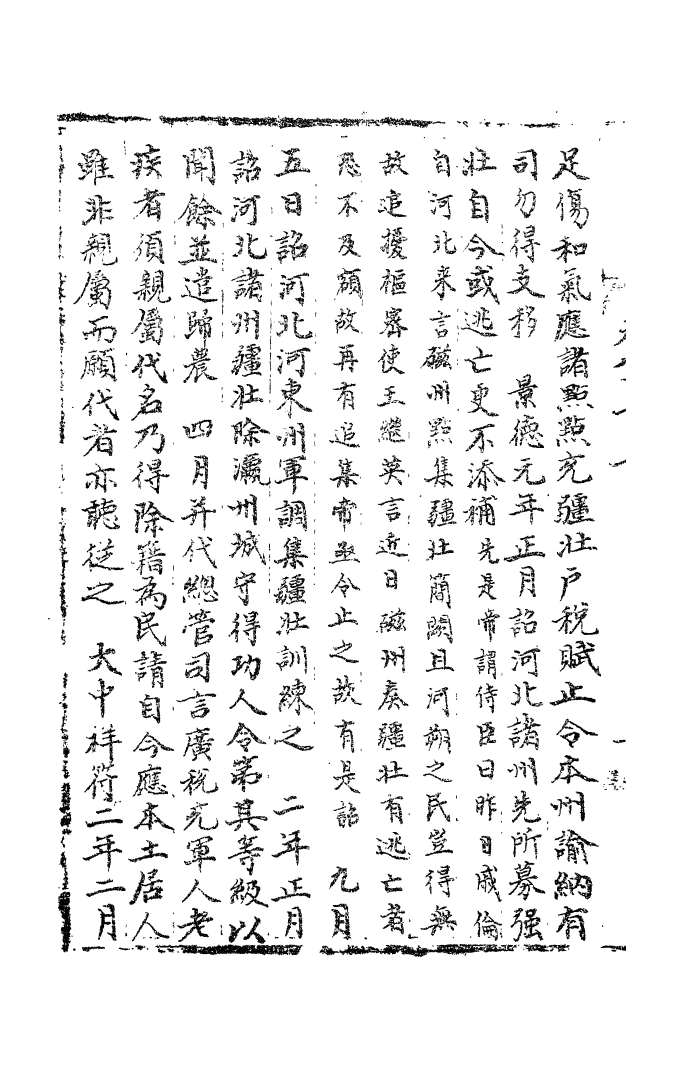 足傷和氣應諸點點充疆壯戶稅賦止令本州諭納有
司勿得支移　景德元年正月詔河北諸州先所募强
壯自今或逃亡更不添補先是帝謂侍臣曰昨日戚倫
自河北来言磁州點集疆壯簡閱且河朔之民豈得無
故追擾樞宻使王繼英言近日磁州疾疆壯有逃亡者
恐不及額故再有追集帝亟令止之故有是詔　九月
五日詔河北河東州軍調集疆壯訓練之　二年正月
詔河北諸州疆壯除瀛州城守得功人令第其等級以
聞餘並遣歸農　四月并代緫管司言廣稅充軍人老
疾者須親屬代名乃得除籍為民請自今應本土居人
雖非親屬而願代者亦聽從之　大中祥符二年二月